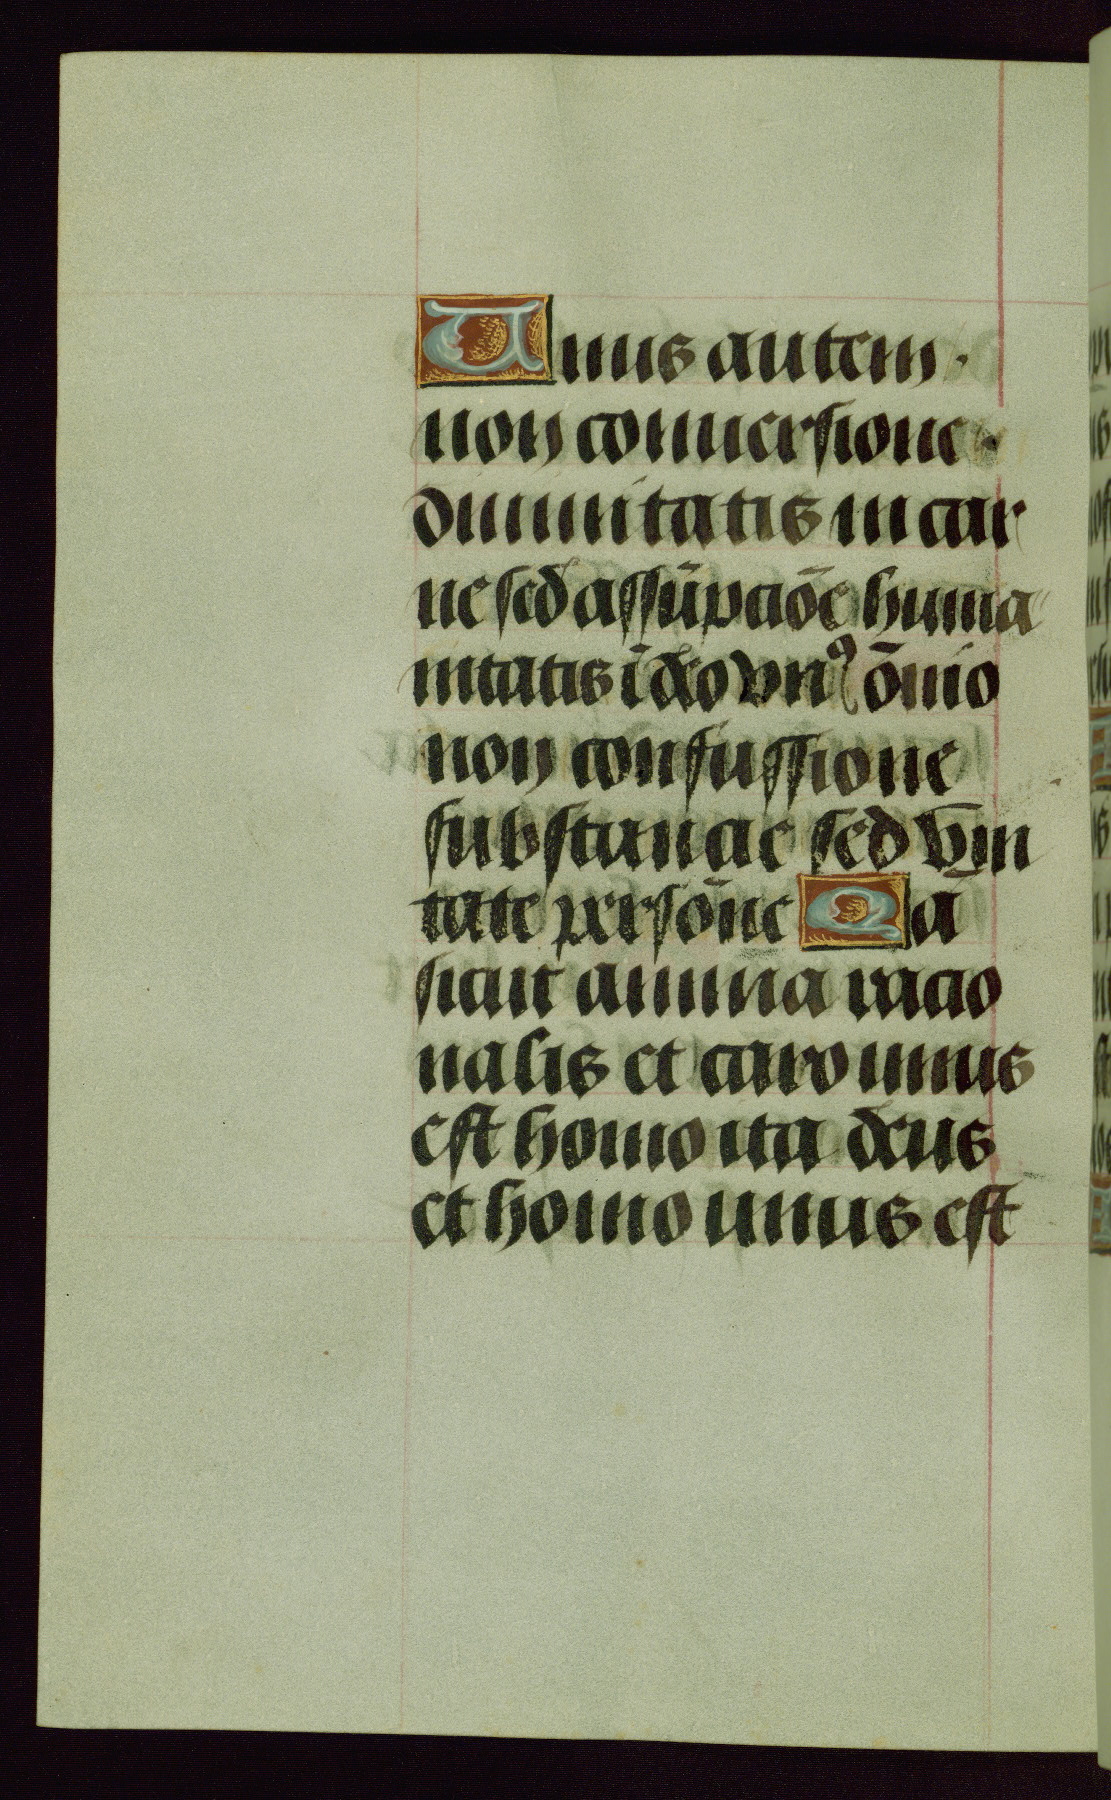 Unus autem ·
non conuersione ·
diuinitatis in car
ne sed assūpciōe huma
nitatis ī deo vnꝰ ōnio
non confussione
substancie sed vni
tate persōne Nā
sicut anima racio
nalis et caro unus
est homo ita deus
et homo unus est